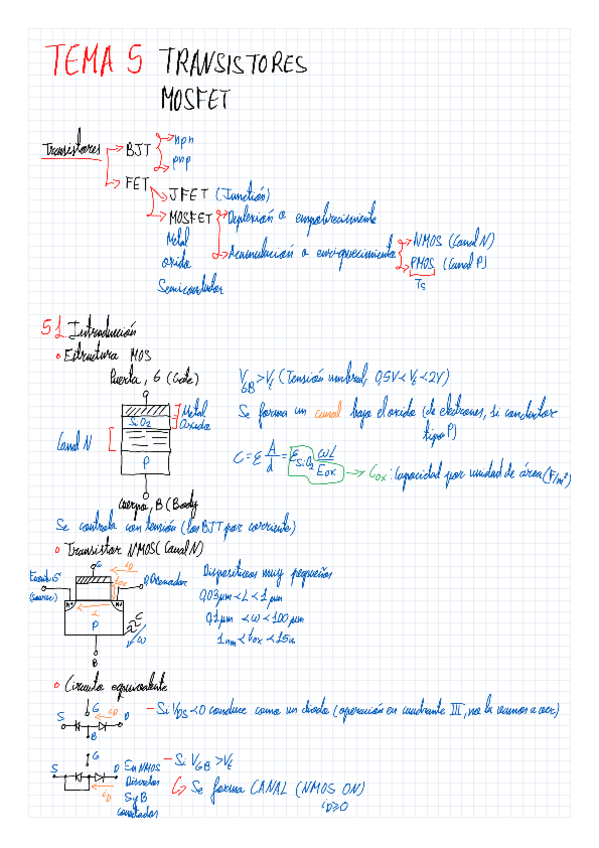 TEMA 5 TRANSISTORES
MOSFET
Transistores
BJT
npn
pnp
FET
JFET (Junction)
MOSFET
Metal
oxido
Semiconductor
Deplexion o empobrecimiento
Acumulación o enriquecimiento
NMOS (Canal N)
PMOS (Canal P)
5.1 Introducción
Estructura MOS
Puerta, G (Gate)
Metal
SiO2
Oxido
Canal N
P
Cuerpo, B (Body
V_GB > V_t (Tensión umbral, 0,5V < V_t < 2V)
Se forma un canal bajo el oxido (de electrones, si conductor
tipo P)
C = ε A/d = ε_SiO2 ωL/E_ox → C_ox: capacidad por unidad de área (F/m²)
Se controla con tensión (los BJT por corriente)
Transistor NMOS (Canal N)
G
i_D
(source)
D, Drenador
tox
N+
N+
L
P
ω
B
Dispositivos muy pequeños
0,03μm < L < 1μm
0,1μm < ω < 100μm
1nm < tox < 15n
Circuito equivalente
S
G
i_D
D
B
- Si V_DS < 0 conduce como un diodo (operación en cuadrante III, no la vamos a ver)
G
S
D
i_D
En NMOS
Discretos
S y B
conectados
- Si V_GB > V_t
Se forma CANAL (NMOS ON)
i_D ≥ 0